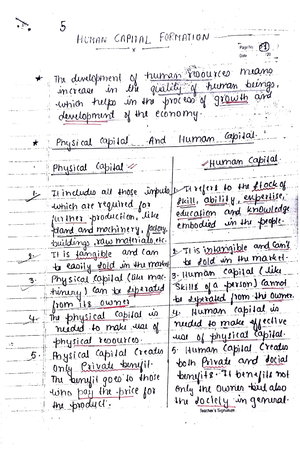 5
HUMAN CAPITAL FORMATION
Page No.
Date
* The development of human resources means
increase in the quality of human beings,
which helps in the process of growth and
development of the economy.
* Physical Capital And Human Capital.
Physical Capital
1. It includes all those inputs
which are required for
further production, like
plant and machinery, factory
buildings raw materials, etc.
2. It is tangible and can
be easily sold in the market
3. Physical Capital (like mac-
hinery) can be seperated
from its owner
4. The physical capital is
needed to make use of
physical resources.
5. Physical Capital Creates
only Private benefit.
The benefit goes to those
who pay the price for
the product.
Human Capital
1. It refers to the stock of
skill, ability, expertise,
education and knowledge
embodied in the people.
2. It is intangible and can't
be sold in the market.
3. Human Capital (like
Skills of a person) cannot
be seperated from the owner.
4. Human Capital is
needed to make effective
use of physical capital.
5. Human Capital Creates
both Private and social
benefits. It benefits not
only the owner but also
the society in general.
Teacher's Signature